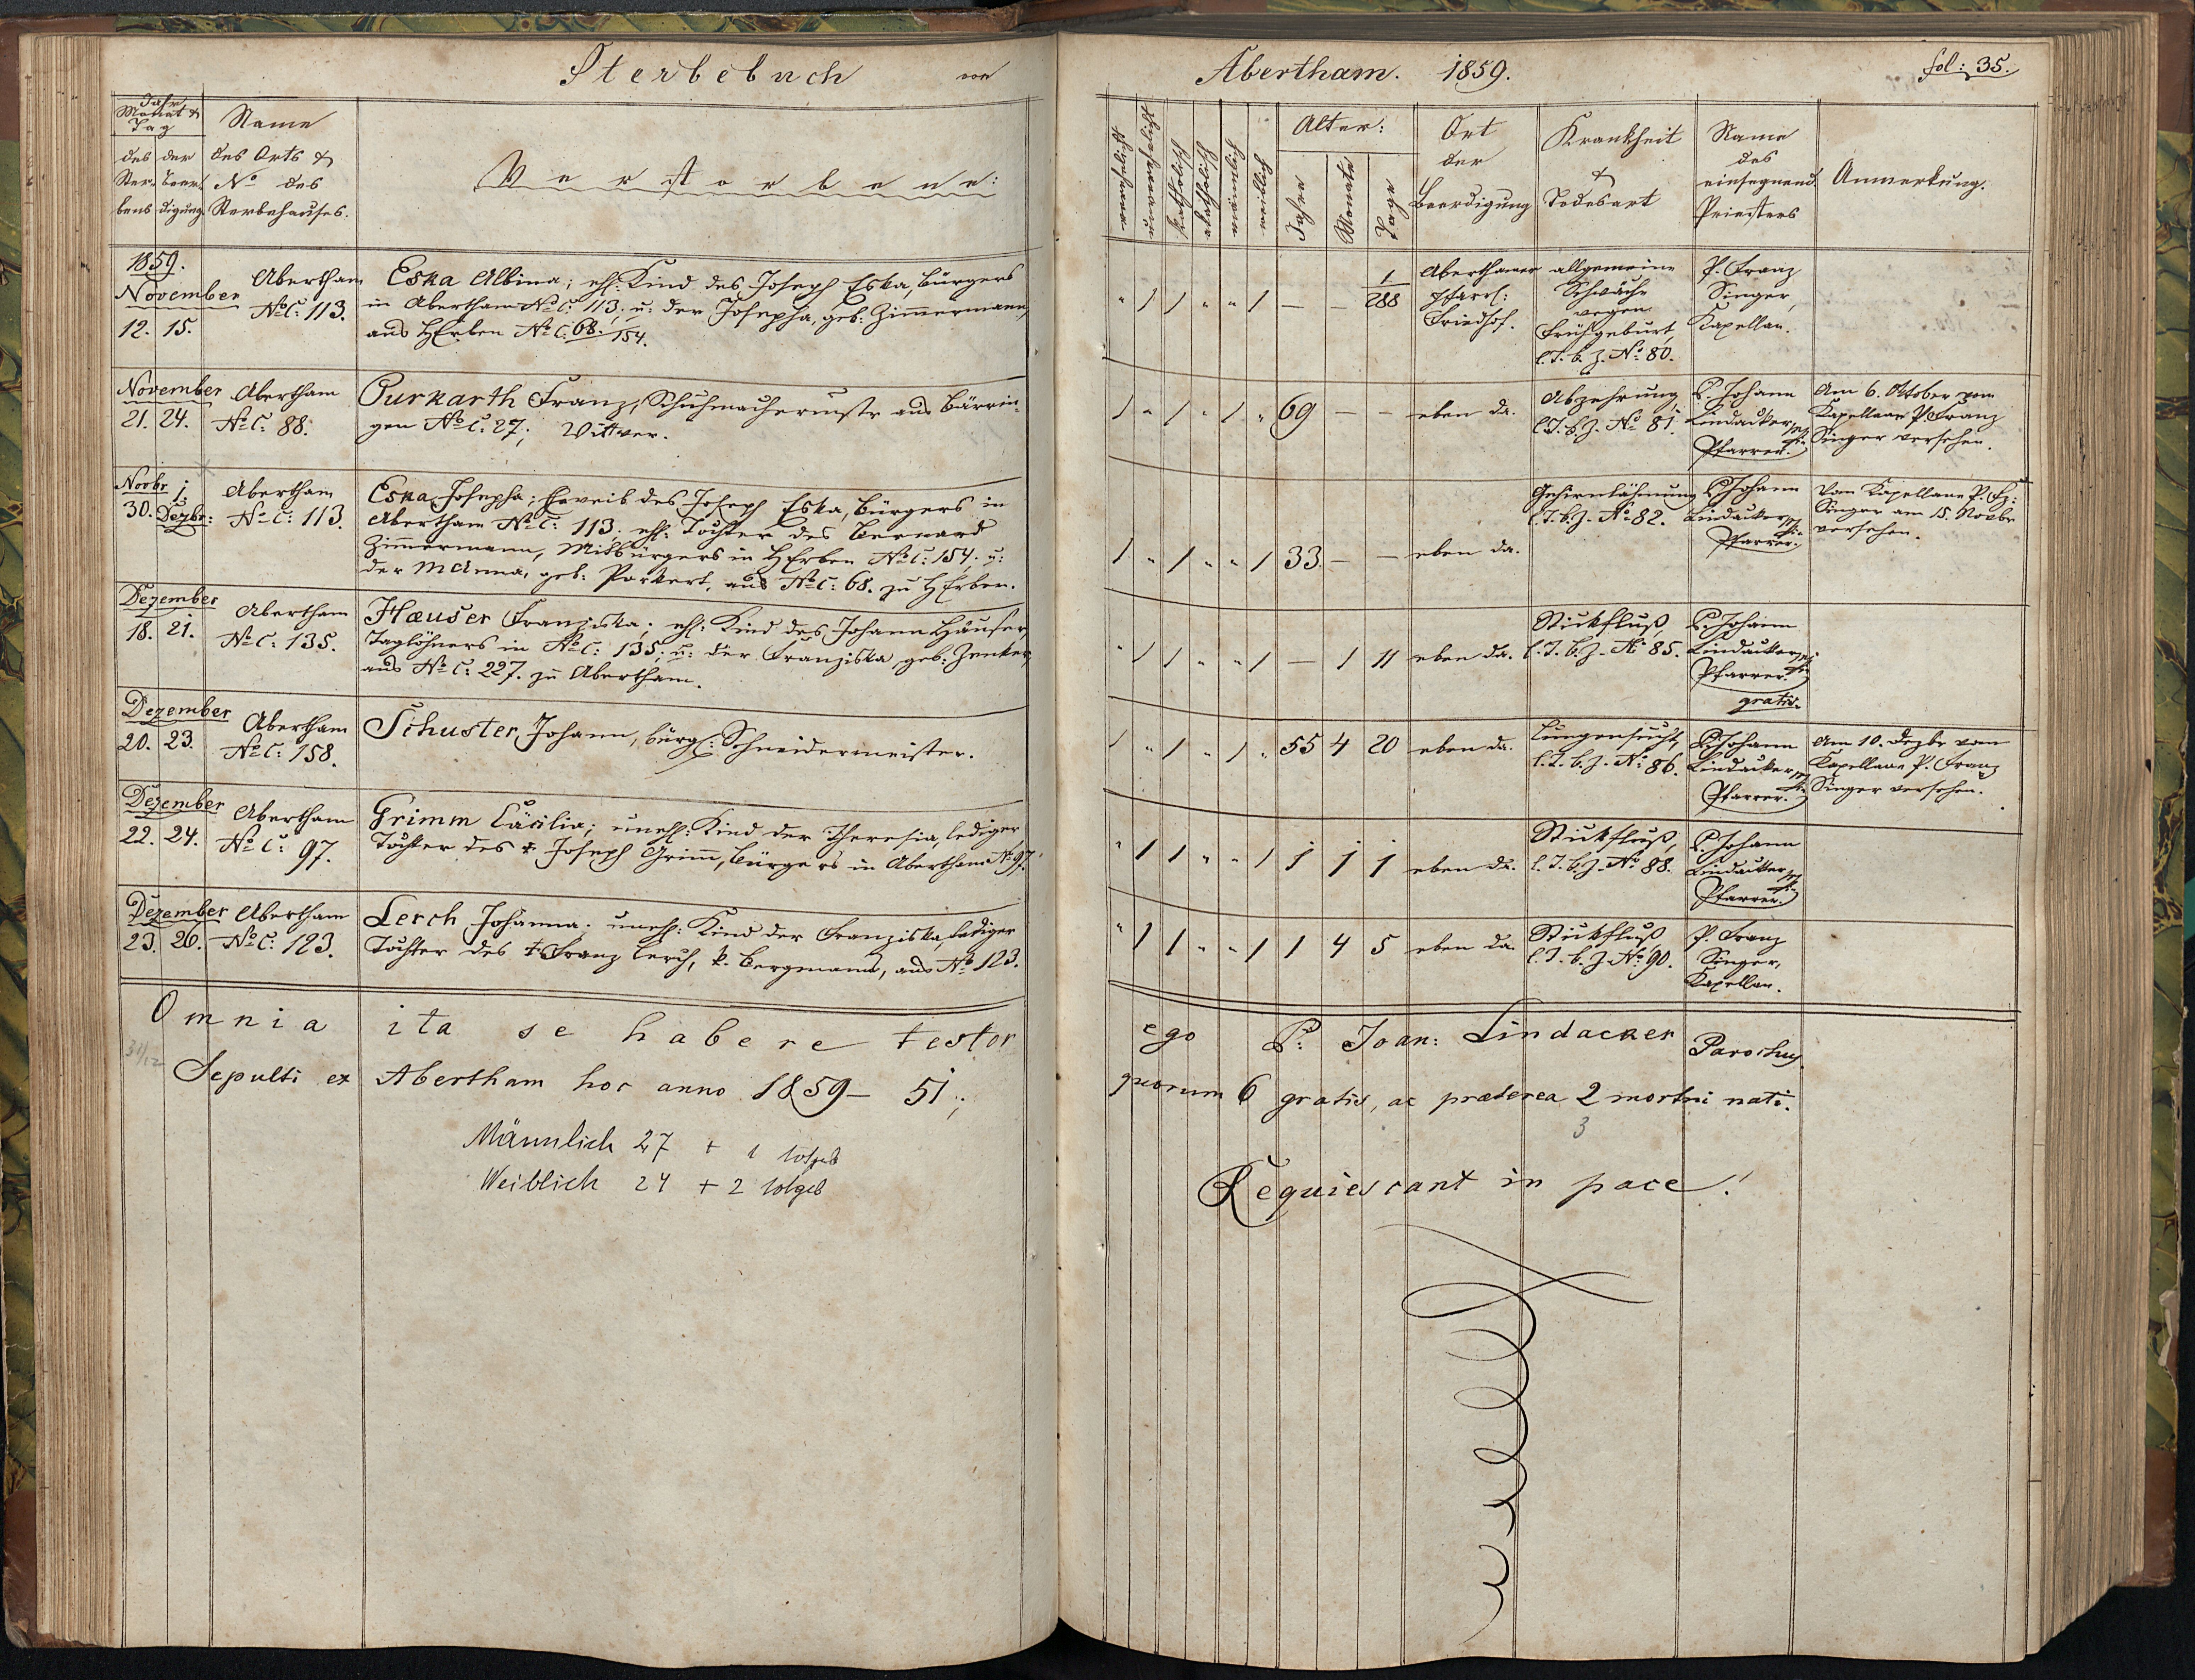 Sterbebuch von
Jahr
Monat &
Tag
des der
Ster- Beer-
bens digung.
Name
des Orts &
No des
Sterbehauses.
Verstorbene:
1859.
November
12. 15.
Abertham
No C: 113.
Eska Albina; ehl: Kind des Joseph Eska, Bürgers
in Abertham No C: 113; u: der Josepha, geb: Zimmermann,
aus HErben No C: 68./154.
November
21. 24.
Abertham
No C: 88.
Purkarth Franz, Schuhmachermstr aus Bärrin-
gen No C: 27; Wittwer.
Novbr 1.
30. Dezbr:
Abertham
No C: 113.
Eska Josepha; Eheweib des Joseph Eska, Bürgers in
Abertham No C: 113; ehl: Tochter des Bernard
Zimmermann, Mitbürgers in HErben No C: 154; u:
der MAnna, geb: Porkert, aus No C: 68. zu HErben.
Dezember
18. 21.
Abertham
No C: 135.
Hæuser Franziska; ehl: Kind des Johann Häuser,
Taglöhners in No C: 135; u: der Franziska, geb: Zenker,
aus No C: 227. zu Abertham.
Dezember
20. 23.
Abertham
No C: 158.
Schuster, Johann, bürgl: Schneidermeister.
Dezember
22. 24.
Abertham
No C: 97.
Grimm Cäcilia; unehl: Kind der Theresia, lediger
Tochter des † Joseph Grimm, Bürgers in Abertham No 97.
Dezember
23. 26.
Abertham
No C: 123.
Lerch Johanna. unehl: Kind der Franziska, lediger
Tochter des † Franz Lerch, k. Bergmanns, aus No 123.
Omnia ita se habere testor
31/12
Sepulti ex Abertham hoc anno 1859 — 51;
Männlich 27 + 1 totgeb
Weiblich 24 + 2 totgeb
Abertham. 1859.
fol: 35.
verehelicht
unverehelicht
katholisch
akatholisch
männlich
weiblich
Alter:
Jahre
Monate
Tage
Ort
der
Beerdigung
Krankheit
&
Todesart
Name
des
einsegnend.
Priesters
Anmerkung.
" 1 1 " " 1 — — 1/288
Aberthamer
Pfarrl:
Friedhof.
allgemeine
Schwäche
wegen
Frühgeburt,
l. T. b. Z. No 80.
P. Franz
Singer,
Kapellan.
1 " 1 " 1 " 69 — — eben da.
Abzehrung,
l. T. b. Z. No 81.
P. Johann
Lindacker
Pfarrer.
Am 6. Oktober vom
Kapellane P. Franz
Singer versehen.
1 " 1 " " 1 33. — — eben da.
Gehirnlähmung
l. T. b. Z. No 82.
P. Johann
Lindacker
Pfarrer.
Vom Kapellane P. Fz:
Singer am 15. Novbr
versehen.
" 1 1 " " 1 — 1 11 eben da.
Stickfluß,
l. T. b. Z. No 85.
P. Johann
Lindacker
Pfarrer.
gratis.
1 " 1 " 1 " 55 4 20 eben da.
Lungensucht,
l. T. b. Z. No 86.
P. Johann
Lindacker
Pfarrer.
Am 10. Dezbr vom
Kapellane P. Franz
Singer versehen.
" 1 1 " " 1 1 1 1 eben da.
Stickfluß,
l. T. b. Z. No 88.
P. Johann
Lindacker
Pfarrer.
" 1 1 " " 1 1 4 5 eben da.
Stickfluß,
l. T. b. Z. No 90.
P. Franz
Singer,
Kapellan.
ego P: Joan: Lindacker Parochus.
quorum 6 gratis, ac præterea 2 mortui nati.
3
Requiescant in pace!